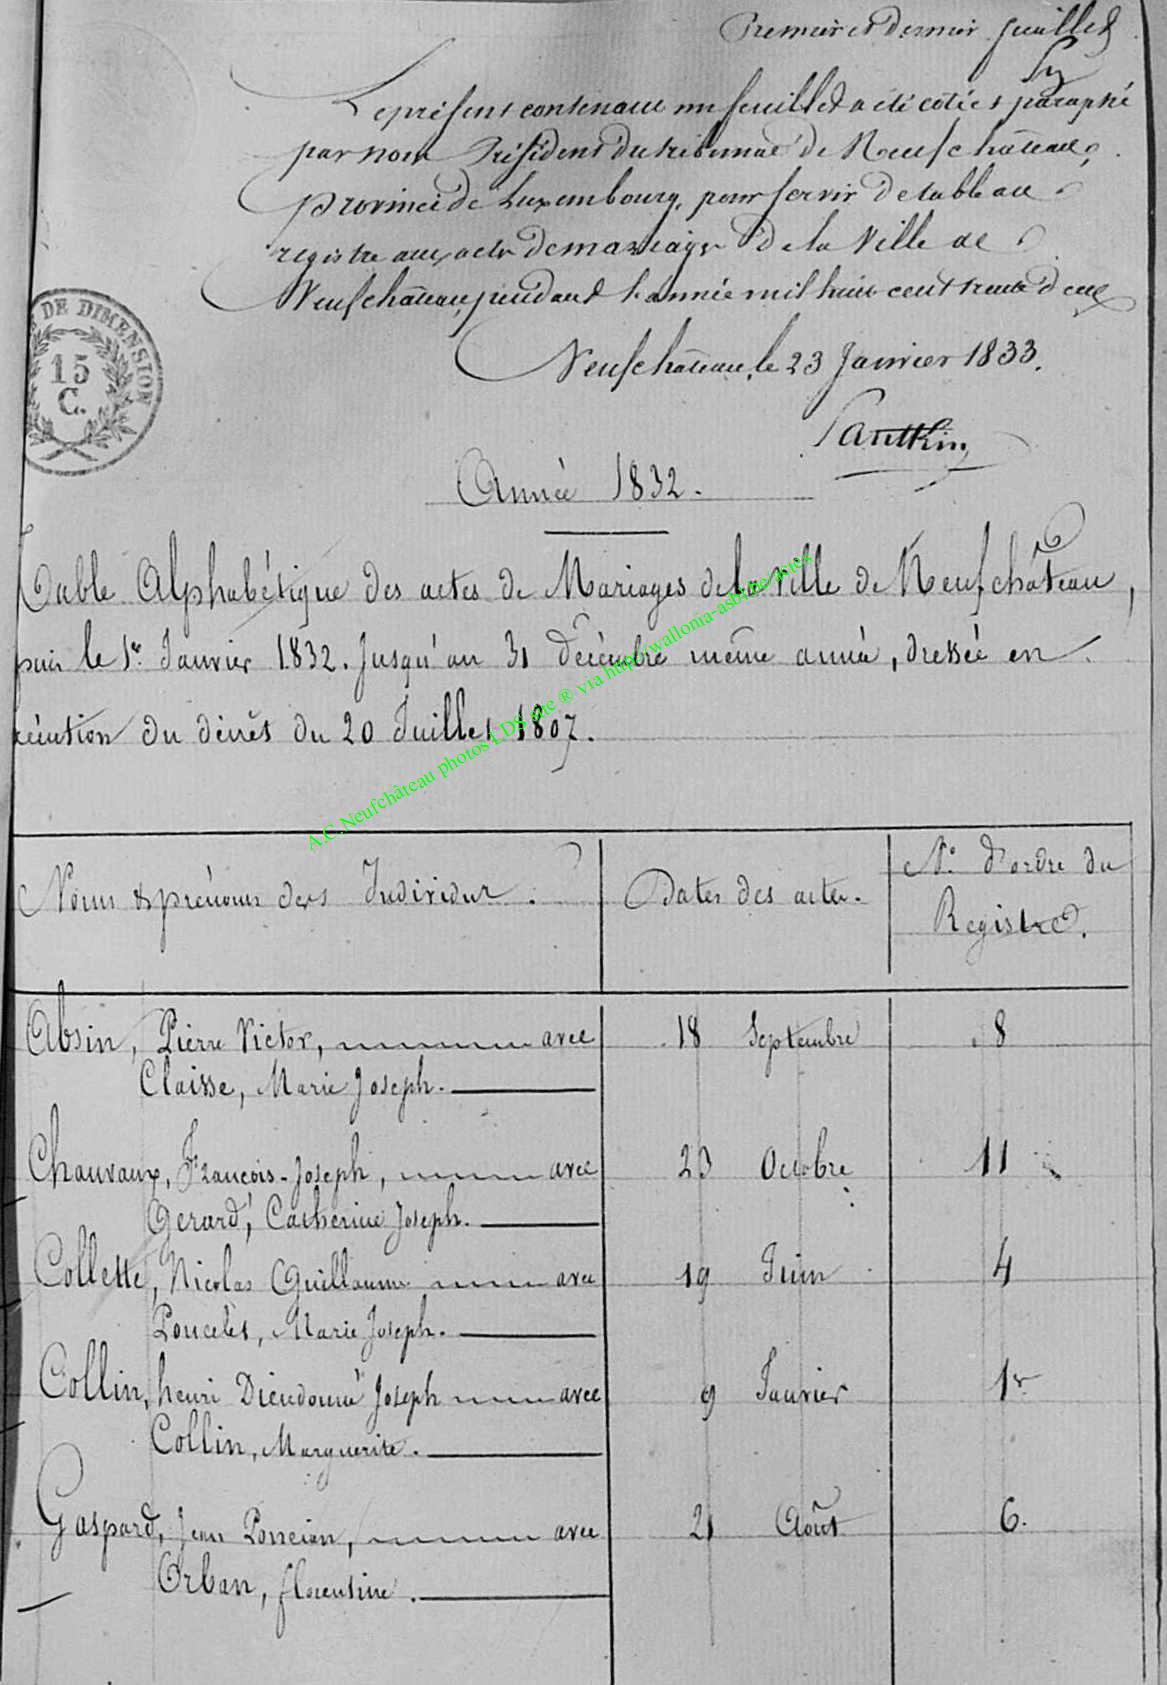 Premier et dernier feuillet
Le présent contenant un feuillet a été coté et paraphé
par nous Président du tribunal de Neufchâteau,
province de Luxembourg, pour servir de tableau
registre aux actes de mariages de la Ville de
Neufchâteau, pendant l'année mil huit cent trente deux
Neufchâteau, le 23 Janvier 1833.
DE DIMENSION
15
C.
Année 1832.
Table Alphabétique des actes de Mariages de la Ville de Neufchâteau,
puis le 1er Janvier 1832. Jusqu'au 31 décembre même année, dressée en
écution du décrêt du 20 Juillet 1807.
A.C.Neufchâteau photos LDS site ® via http://wallonia-asbl.be/actes
Noms & prénoms des Individus. Dates des actes. No. d'ordre du
Registre.
Absin, Pierre Victor, avec 18 Septembre 8
Claisse, Marie Joseph.
Chauvaux, François-Joseph, avec 23 Octobre 11
Gerard, Catherine Joseph.
Collette, Nicolas Guillaume avec 19 Juin 4
Poncelet, Marie Joseph.
Collin, henri Dieudonné Joseph avec 9 Janvier 1r
Collin, Marguerite.
Gaspard, Jean Poncian, avec 21 Août 6.
Orban, florentine.